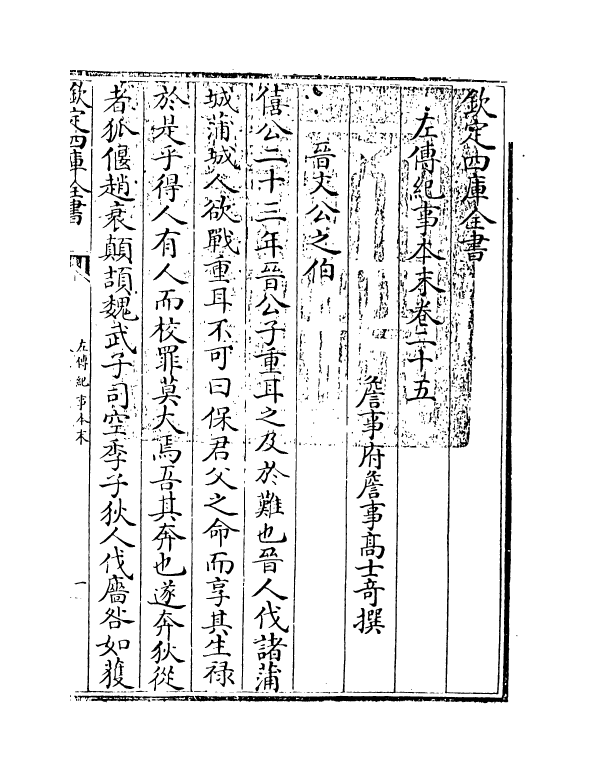 欽定四庫全書
左傳紀事本末卷二十五
詹事府詹事高士奇撰
晉文公之伯
僖公二十三年晉公子重耳之及於難也晉人伐諸蒲
城蒲城人欲戰重耳不可曰保君父之命而享其生祿
於是乎得人有人而校罪莫大焉吾其奔也遂奔狄從
者狐偃趙衰顛頡魏武子司空季子狄人伐廧咎如獲
欽定四庫全書
左傳紀事本末
一